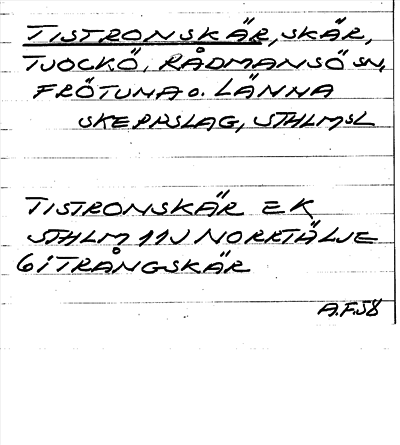 TISTRONSKÄR, SKÄR,
TJOCKÖ, RÅDMANSÖ SN,
FRÖTUNA O. LÄNNA
SKEPPSLAG, STHLMSL
TISTRONSKÄR EK
STHLM 11J NORRTÄLJE
6i TRÅNGSKÄR
A.F.58